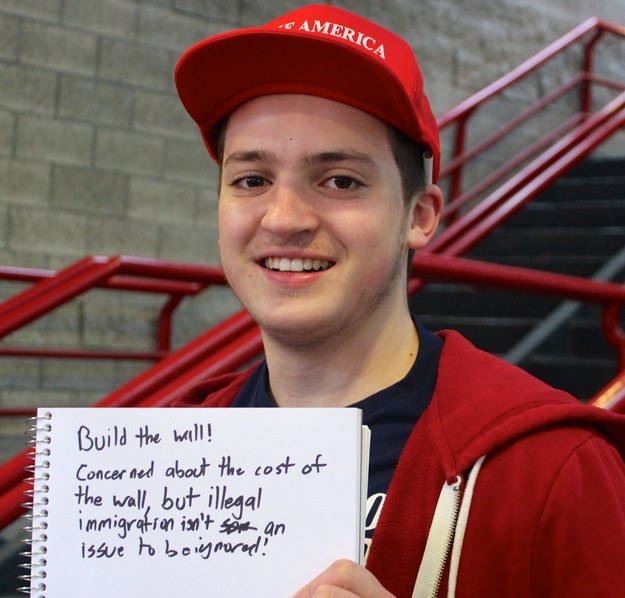 E AMERICA
Build the wall!
Concerned about the cost of
the wall, but illegal
immigration isn't an
issue to be ignored!